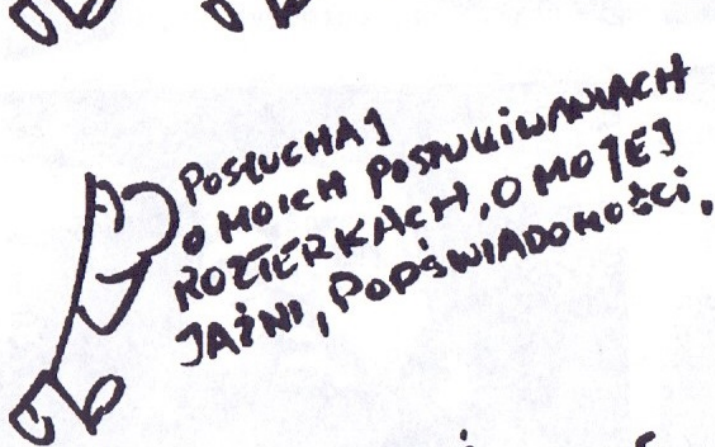 POSŁUCHAJ
O MOICH POSZUKIWANIACH
ROZTERKACH, O MOJEJ
JAŹNI, PODŚWIADOMOŚCI,